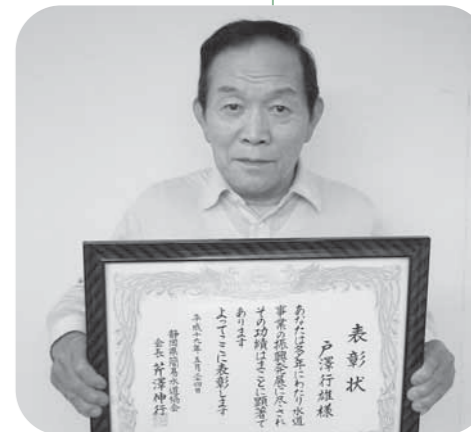 表彰状
戸澤行雄様
あなたは多年にわたり水道
事業の振興発展に尽され
その功績はまことに顕著で
あります
よってここに表彰します
平成十九年五月二十四日
静岡県簡易水道協会
会長 芹澤伸行